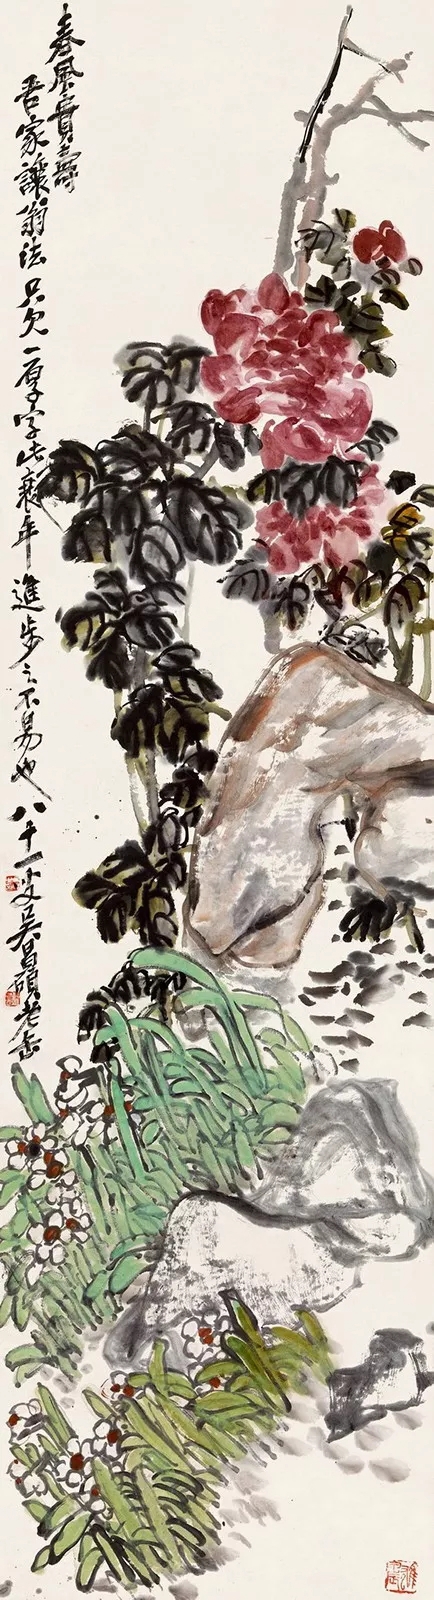 春風貴壽
吾家讓翁法只欠一厚字此衰年進步之不易也八十一叟吳昌碩老缶